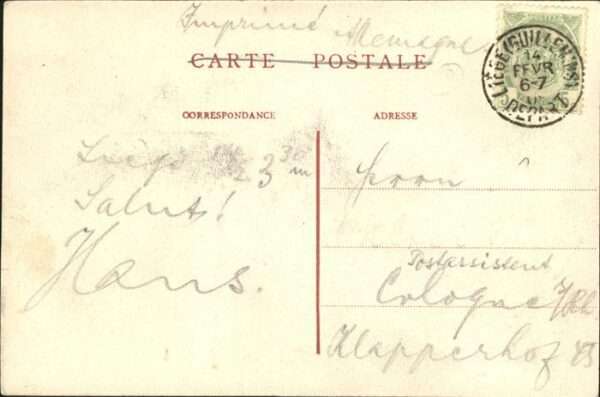 Imprimé Allemagne
CARTE POSTALE
LIÈGE (GUILLEMINS)
14
FEVR
6-7
DEPART
CORRESPONDANCE
ADRESSE
Salut!
Hans.
Herrn
Postassistent
Cologne a/Rh
Klapperhof 43